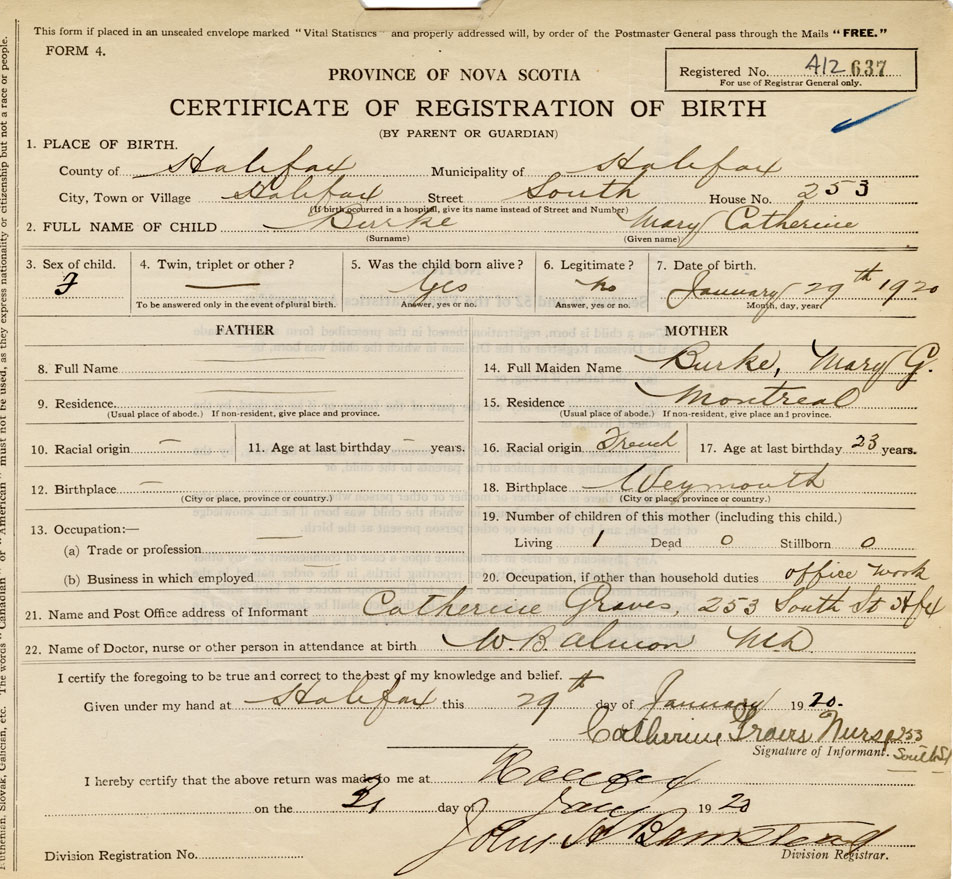 This form if placed in an unsealed envelope marked "Vital Statistics" and properly addressed will, by order of the Postmaster General pass through the Mails "FREE."
FORM 4.
Registered No. 412 637
For use of Registrar General only.
PROVINCE OF NOVA SCOTIA
CERTIFICATE OF REGISTRATION OF BIRTH
(BY PARENT OR GUARDIAN)
1. PLACE OF BIRTH.
County of Halifax Municipality of Halifax
City, Town or Village Halifax Street South House No. 253
(If birth occurred in a hospital, give its name instead of Street and Number)
2. FULL NAME OF CHILD Burke Mary Catherine
(Surname) (Given name)
3. Sex of child. 4. Twin, triplet or other? 5. Was the child born alive? 6. Legitimate? 7. Date of birth.
F — Yes no January 29th 1920
To be answered only in the event of plural birth. Answer, yes or no. Answer, yes or no. Month, day, year
FATHER MOTHER
8. Full Name — 14. Full Maiden Name Burke, Mary G.
9. Residence. — 15. Residence Montreal
(Usual place of abode.) If non-resident, give place and province. (Usual place of abode.) If non-resident, give place and province.
10. Racial origin — 11. Age at last birthday — years. 16. Racial origin French 17. Age at last birthday 23 years.
12. Birthplace — 18. Birthplace Weymouth
(City or place, province or country.) (City or place, province or country)
13. Occupation:— 19. Number of children of this mother (including this child.)
(a) Trade or profession — Living 1 Dead 0 Stillborn 0
(b) Business in which employed — 20. Occupation, if other than household duties office work
21. Name and Post Office address of Informant Catherine Graves, 253 South St Hfx
22. Name of Doctor, nurse or other person in attendance at birth W. B. Almon M.D.
I certify the foregoing to be true and correct to the best of my knowledge and belief.
Given under my hand at Halifax this 29th day of January 1920.
Catherine Graves Nurse 253
Signature of Informant. South St
I hereby certify that the above return was made to me at
on the 31 day of Jany 1920
John A
Division Registration No. Division Registrar.
Ruthenian, Slovak, Galician, etc. The words "Canadian" or "American" must not be used, as they express nationality or citizenship but not a race or people.